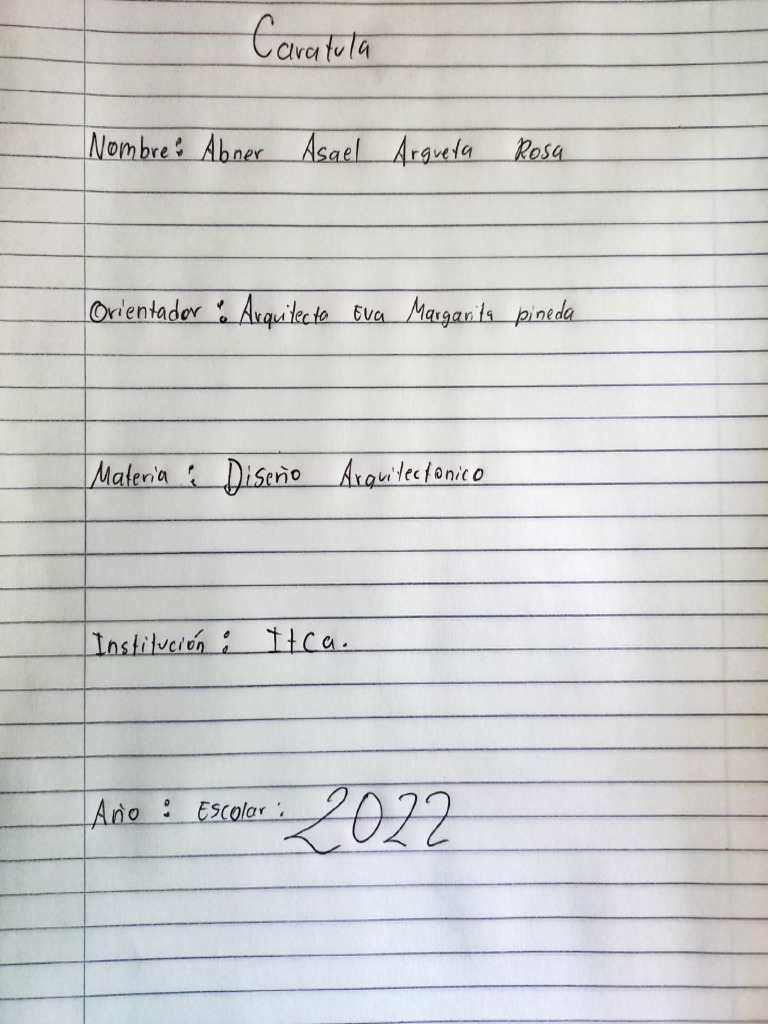 Caratula
Nombre: Abner Asael Argueta Rosa
Orientador: Arquitecto Eva Margarita pineda
Materia: Diseño Arquitectonico
Institución: Itca.
Año: Escolar: 2022